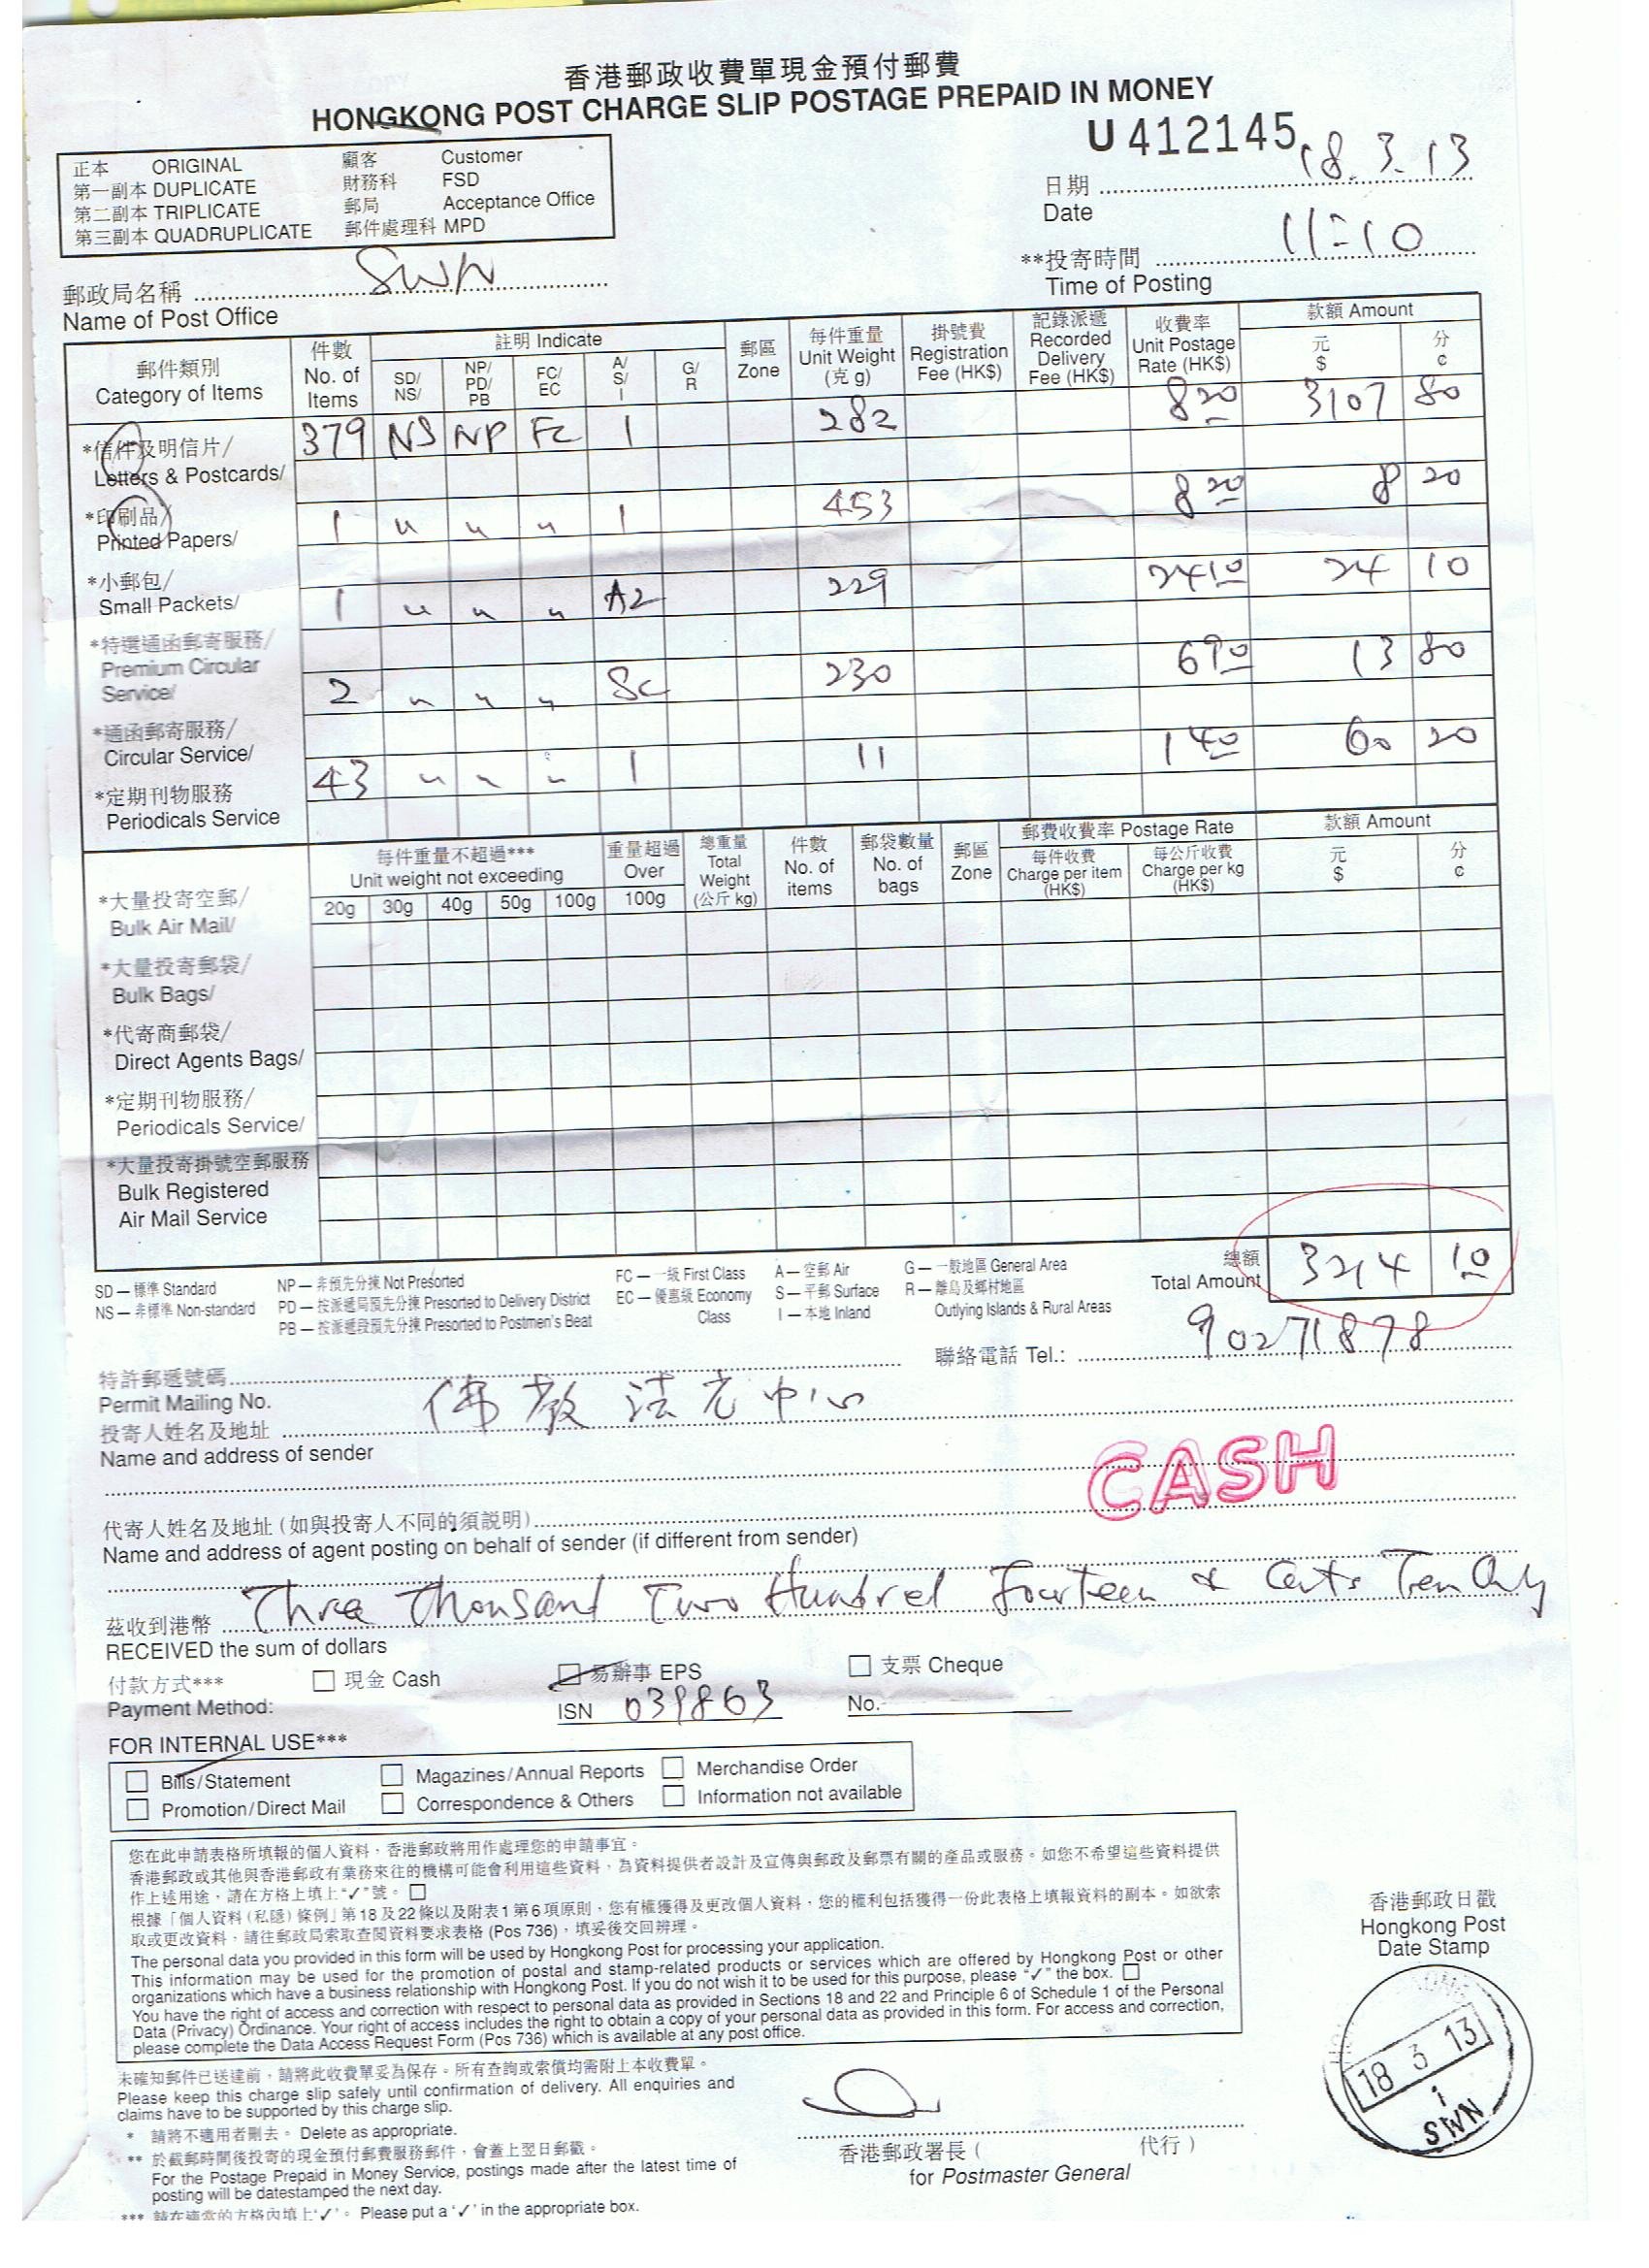 香港郵政收費單現金預付郵費
HONGKONG POST CHARGE SLIP POSTAGE PREPAID IN MONEY
U 412145
正本 ORIGINAL 顧客 Customer
第一副本 DUPLICATE 財務科 FSD
第二副本 TRIPLICATE 郵局 Acceptance Office
第三副本 QUADRUPLICATE 郵件處理科 MPD
日期 18.3.13
Date
**投寄時間 11=10
Time of Posting
郵政局名稱 SWN
Name of Post Office
郵件類別 Category of Items
件數 No. of Items
註明 Indicate
SD/ NS/
NP/ PD/ PB
FC/ EC
A/ S/ I
G/ R
郵區 Zone
每件重量 Unit Weight (克 g)
掛號費 Registration Fee (HK$)
記錄派遞 Recorded Delivery Fee (HK$)
收費率 Unit Postage Rate (HK$)
款額 Amount
元 $
分 ¢
*信件及明信片/
Letters & Postcards/
379 NS NP FC I 282 8 20 3107 80
*印刷品/
Printed Papers/
1 " " " I 453 8 20 8 20
*小郵包/
Small Packets/
1 " " " A2 229 24 10 24 10
*特選通函郵寄服務/
Premium Circular
Service/
2 " " " Sc 230 6 90 13 80
*通函郵寄服務/
Circular Service/
43 " " " I 11 1 40 60 20
*定期刊物服務
Periodicals Service
每件重量不超過***
Unit weight not exceeding
20g 30g 40g 50g 100g
重量超過 Over 100g
總重量 Total Weight (公斤 kg)
件數 No. of items
郵袋數量 No. of bags
郵區 Zone
郵費收費率 Postage Rate
每件收費 Charge per item (HK$)
每公斤收費 Charge per kg (HK$)
款額 Amount
元 $
分 ¢
*大量投寄空郵/
Bulk Air Mail/
*大量投寄郵袋/
Bulk Bags/
*代寄商郵袋/
Direct Agents Bags/
*定期刊物服務/
Periodicals Service/
*大量投寄掛號空郵服務
Bulk Registered
Air Mail Service
總額
Total Amount 3214 10
SD — 標準 Standard
NS — 非標準 Non-standard
NP — 非預先分揀 Not Presorted
PD — 按派遞局預先分揀 Presorted to Delivery District
PB — 按派遞段預先分揀 Presorted to Postmen's Beat
FC — 一級 First Class
EC — 優惠級 Economy Class
A — 空郵 Air
S — 平郵 Surface
I — 本地 Inland
G — 一般地區 General Area
R — 離島及鄉村地區
Outlying Islands & Rural Areas
聯絡電話 Tel.: 90271878
特許郵遞號碼
Permit Mailing No.
投寄人姓名及地址 佛教法光中心
Name and address of sender
CASH
代寄人姓名及地址 (如與投寄人不同的須説明)
Name and address of agent posting on behalf of sender (if different from sender)
茲收到港幣 Three Thousand Two Hundred Fourteen & Cents Ten Only
RECEIVED the sum of dollars
付款方式*** 現金 Cash 易辦事 EPS 支票 Cheque
Payment Method: ISN 039863 No.
FOR INTERNAL USE***
Bills/Statement Magazines/Annual Reports Merchandise Order
Promotion/Direct Mail Correspondence & Others Information not available
您在此申請表格所填報的個人資料，香港郵政將用作處理您的申請事宜。
香港郵政或其他與香港郵政有業務來往的機構可能會利用這些資料，為資料提供者設計及宣傳與郵政及郵票有關的產品或服務。如您不希望這些資料提供
作上述用途，請在方格上填上“✓”號。
根據「個人資料(私隱)條例」第18及22條以及附表1第6項原則，您有權獲得及更改個人資料，您的權利包括獲得一份此表格上填報資料的副本。如欲索
取或更改資料，請往郵政局索取查閱資料要求表格 (Pos 736)，填妥後交回辨理。
The personal data you provided in this form will be used by Hongkong Post for processing your application.
This information may be used for the promotion of postal and stamp-related products or services which are offered by Hongkong Post or other
organizations which have a business relationship with Hongkong Post. If you do not wish it to be used for this purpose, please “✓” the box.
You have the right of access and correction with respect to personal data as provided in Sections 18 and 22 and Principle 6 of Schedule 1 of the Personal
Data (Privacy) Ordinance. Your right of access includes the right to obtain a copy of your personal data as provided in this form. For access and correction,
please complete the Data Access Request Form (Pos 736) which is available at any post office.
香港郵政日戳
Hongkong Post
Date Stamp
18 3 13
1
SWN
未確知郵件已送達前，請將此收費單妥為保存。所有查詢或索償均需附上本收費單。
Please keep this charge slip safely until confirmation of delivery. All enquiries and
claims have to be supported by this charge slip.
* 請將不適用者刪去。 Delete as appropriate.
** 於截郵時間後投寄的現金預付郵費服務郵件，會蓋上翌日郵戳。
For the Postage Prepaid in Money Service, postings made after the latest time of
posting will be datestamped the next day.
*** 請在適當的方格內填上‘✓’。 Please put a ‘✓’ in the appropriate box.
香港郵政署長 ( 代行 )
for Postmaster General